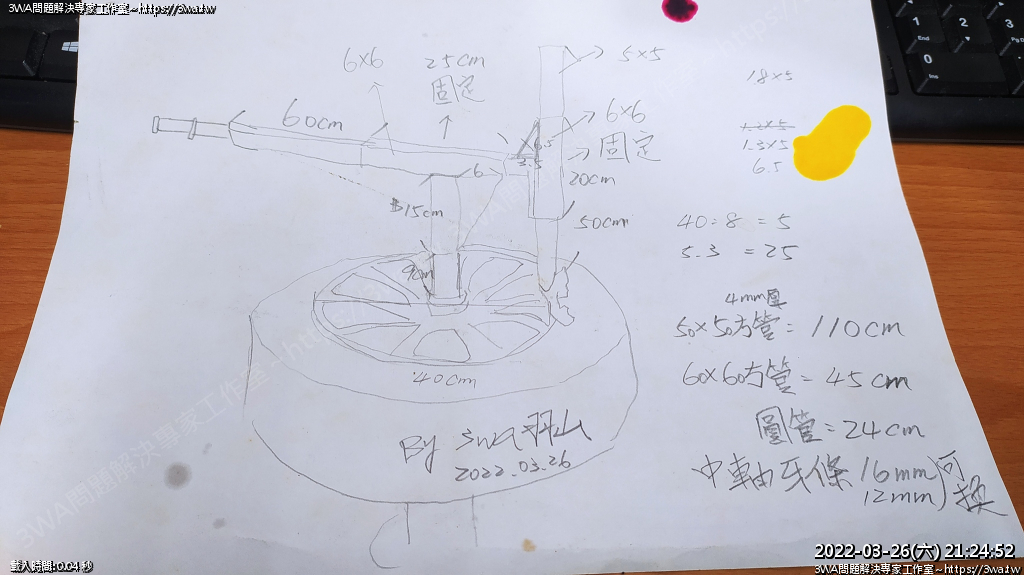 3WA問題解決專家工作室~https://3wa.tw
6x6
25cm
固定
5x5
18x5
60cm
6x6
固定
1.3x5
1.3x5
6.5
6.5
3.5
6
20cm
15cm
50cm
40÷8=5
5.3=25
9cm
4mm厚
50x50方管=110cm
60x60方管=45cm
40cm
圓管=24cm
By 3WA羽山
2022.03.26
中軸牙條 16mm
12mm
可換
載入時間:0.04 秒
2022-03-26(六) 21:24:52
3WA問題解決專家工作室~https://3wa.tw